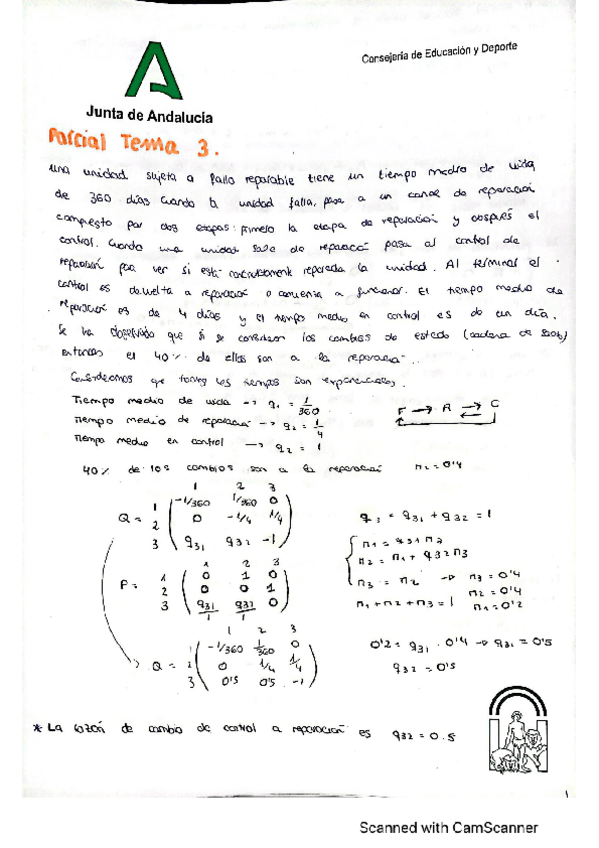 Consejería de Educación y Deporte
Junta de Andalucía
Parcial Tema 3.
una unidad sujeta a fallo reparable tiene un tiempo medio de vida
de 360 días cuando la unidad falla, pasa a un canal de reparación
compuesto por dos etapas: primero la etapa de reparación y después el
control. Cuando una unidad sale de reparación pasa al control de
reparación para ver si está correctamente reparada la unidad. Al terminar el
control es devuelta a reparación o comienza a funcionar. El tiempo medio de
reparación es de 4 días y el tiempo medio en control es de un día.
Se ha observado que si se consideran los cambios de estado (cadena de saltos)
entonces el 40% de ellos son a la reparación.
Consideremos que todos los tiempos son exponenciales.
Tiempo medio de vida → q₁ = 1/360
F → R ⇄ C
Tiempo medio de reparación → q₂ = 1/4
Tiempo medio en control → q₃ = 1
40% de los cambios son a la reparación π₂ = 0'4
1 2 3
1 -1/360 1/360 0
Q = 2 0 -1/4 1/4
3 q₃₁ q₃₂ -1
q₃ = q₃₁ + q₃₂ = 1
π₁ = q₃₁ π₃
π₂ = π₁ + q₃₂ π₃
π₃ = π₂ → π₃ = 0'4
π₂ = 0'4
π₁ + π₂ + π₃ = 1 π₁ = 0'2
1 2 3
P = 1 0 1 0
2 0 0 1
3 q₃₁/1 q₃₂/1 0
1 2 3
1 -1/360 1/360 0
Q = 2 0 1/4 1/4
3 0'5 0'5 -1
0'2 = q₃₁ · 0'4 → q₃₁ = 0'5
q₃₂ = 0'5
* La razón de cambio de control a reparación es q₃₂ = 0.5
1
Scanned with CamScanner